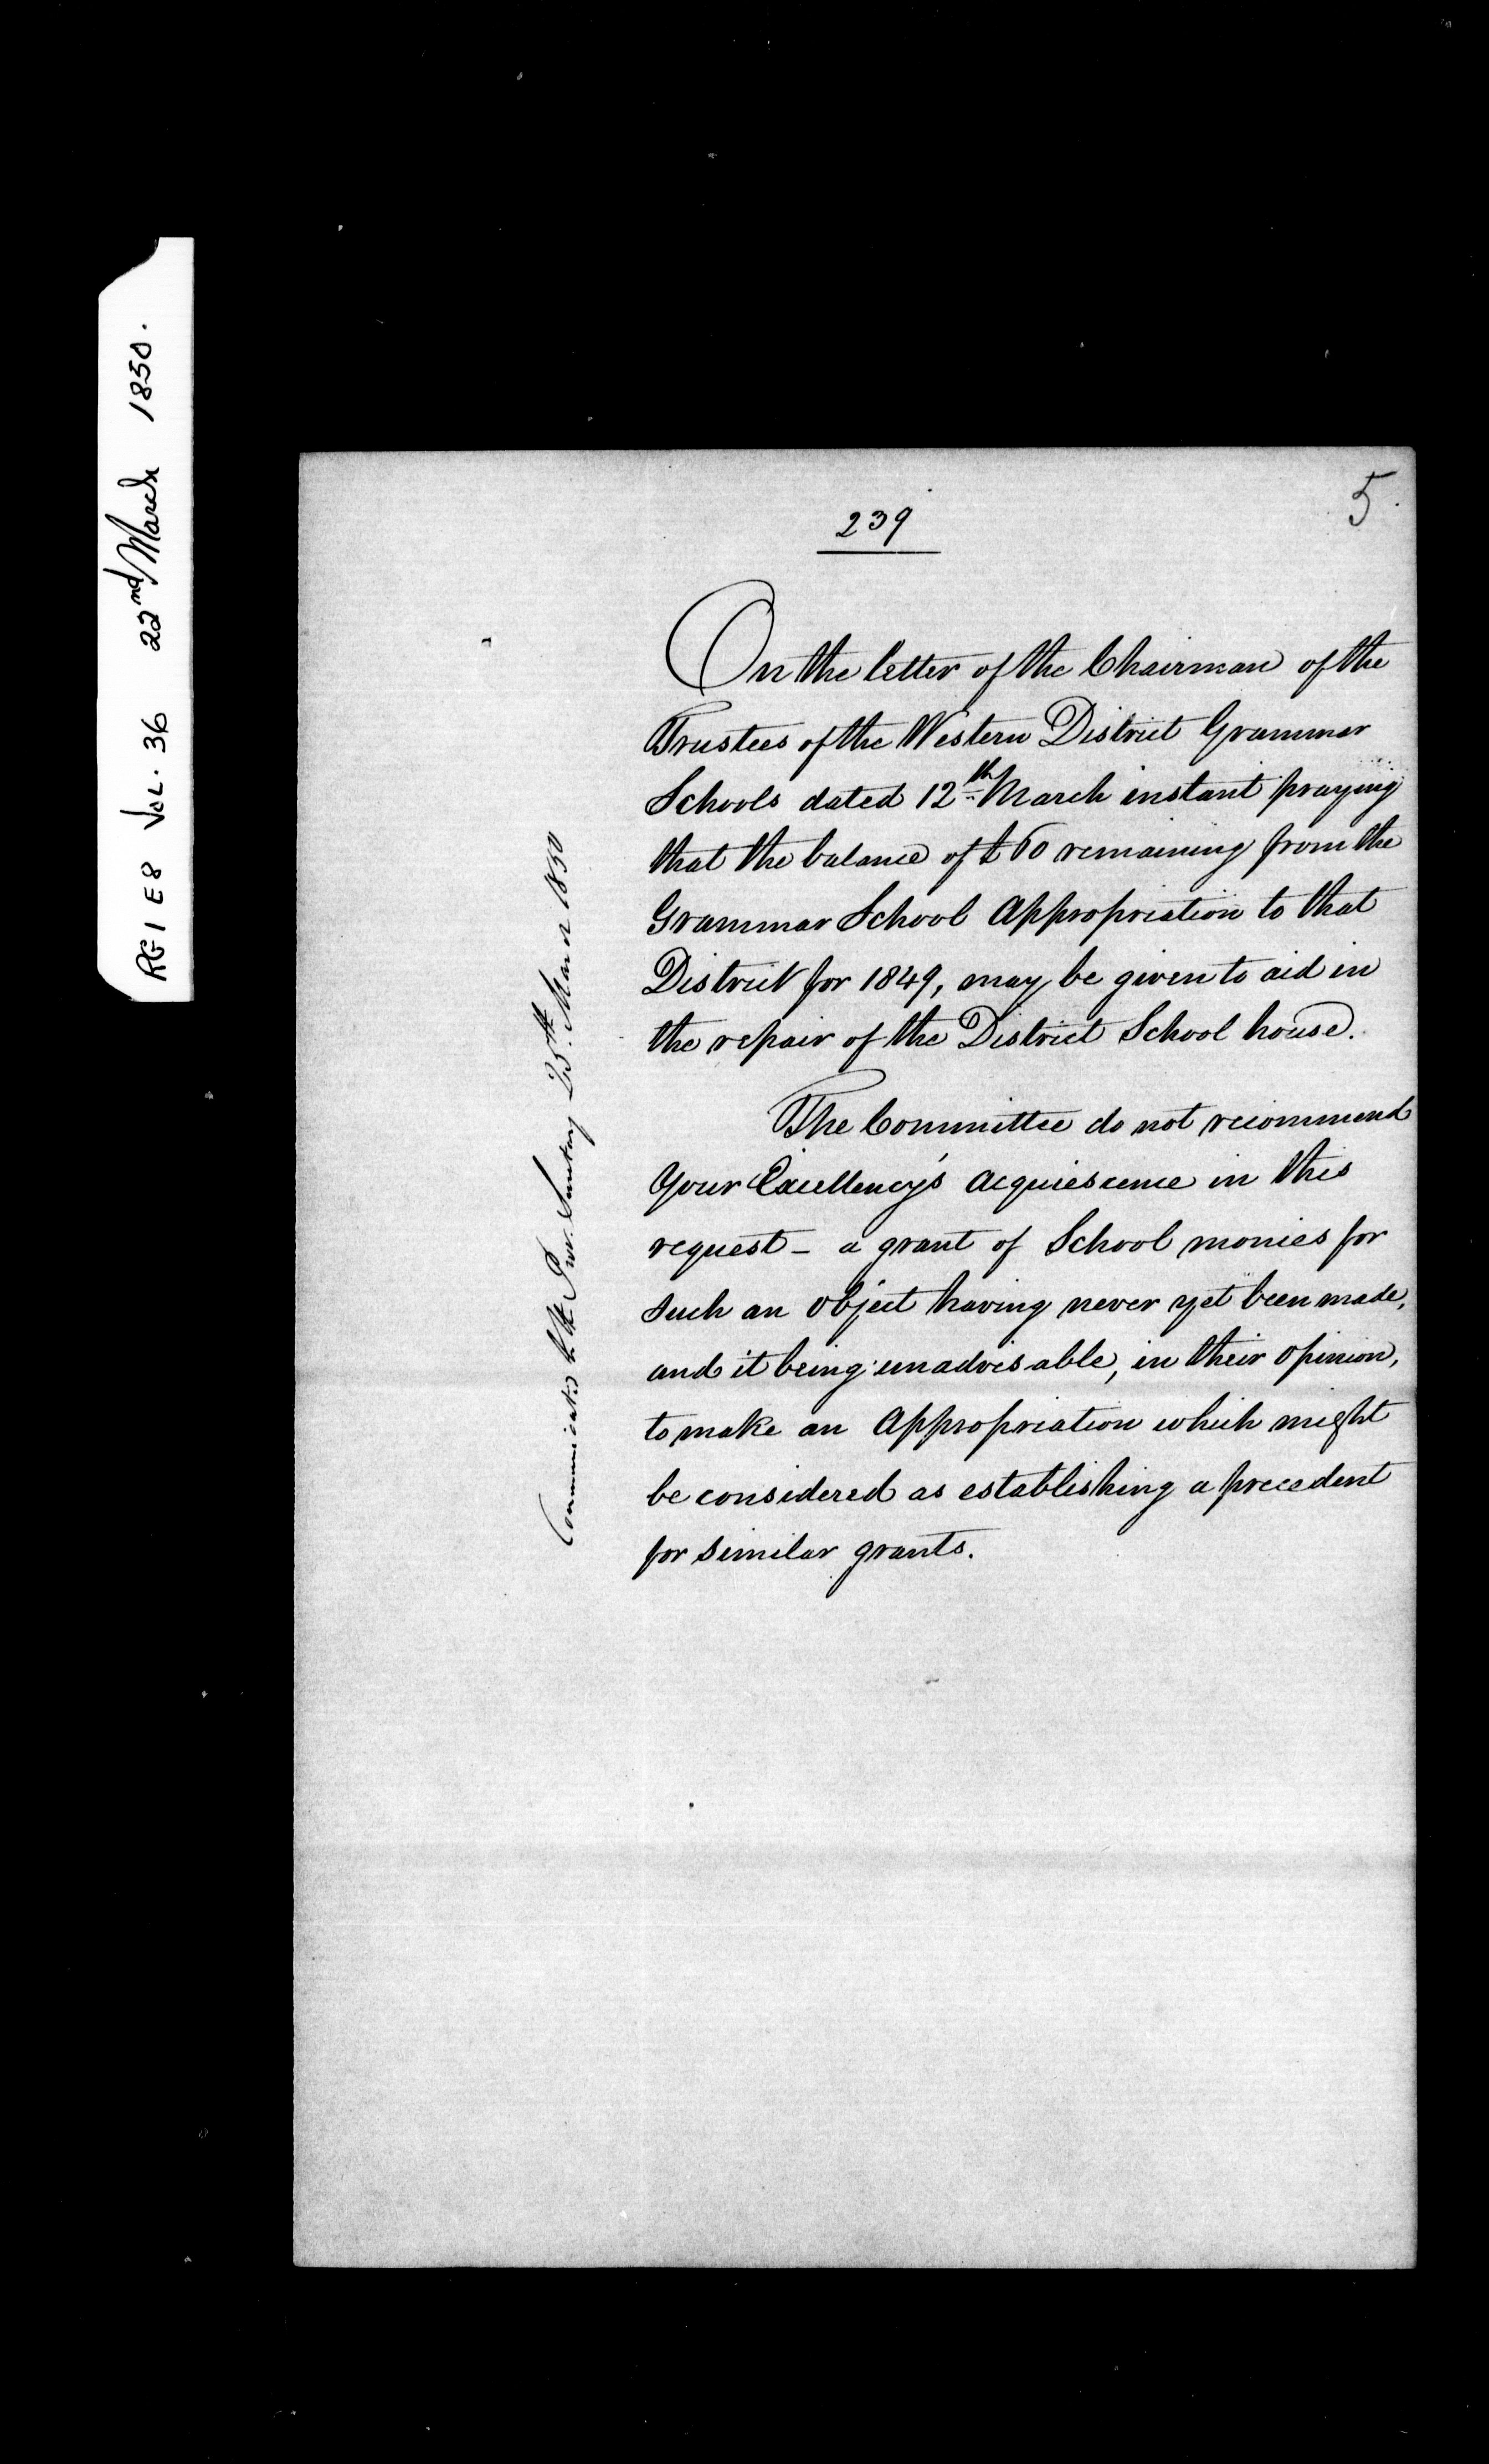 RG 1 E8 VOL. 36 22nd March 1850.
239
5
On the letter of the Chairman of the
Trustees of the Western District Grammar
Schools dated 12th March instant praying
that the balance of £60 remaining from the
Grammar School Appropriation to that
District for 1849, may be given to aid in
the repair of the District School house.
The Committee do not recommend
Your Excellency's acquiescence in this
request - a grant of School monies for
such an object having never yet been made,
and it being unadvisable, in their opinion,
to make an Appropriation which might
be considered as establishing a precedent
for similar grants.
Communicated to the Prov. Secretary 25th March 1850